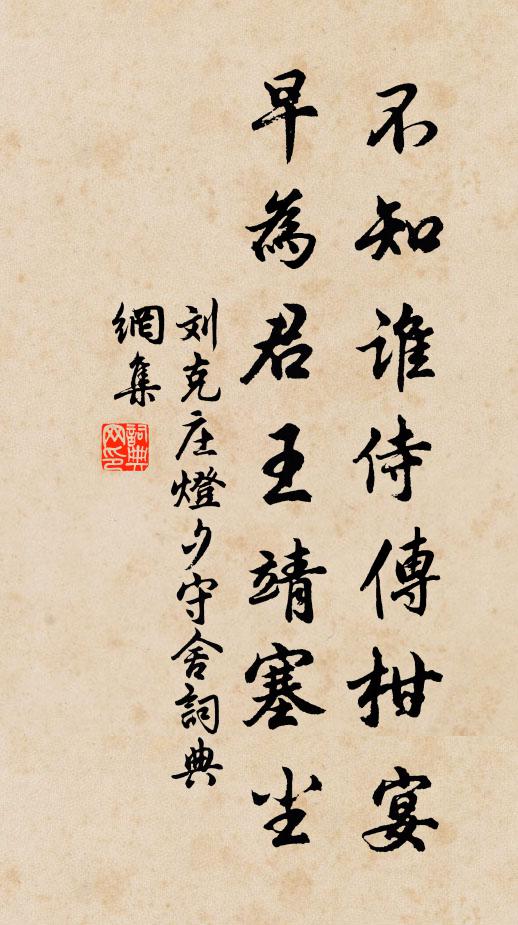 不知誰侍傳柑宴
早為君王靖塞尘
刘克庄燈夕守舍詞典
網集
詞典網印